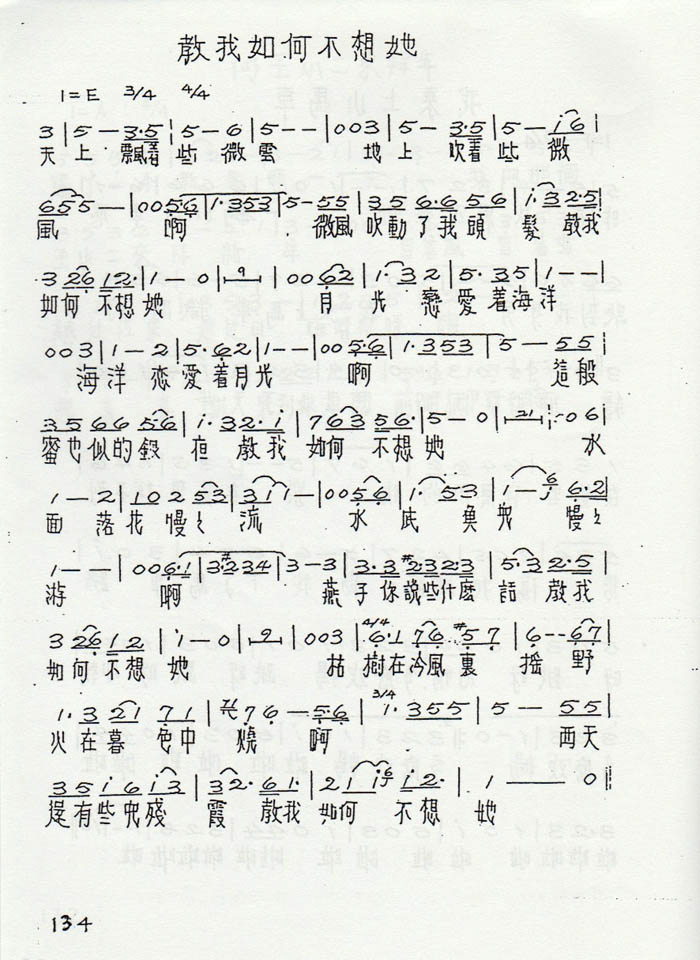 教我如何不想她
1=E 3/4 4/4
3|5—3·5|5—6|5——|003|5—3·5|5—i6|
天上飄着些微雲 地上吹着些微
655 5—|0056|1·353|5—55|35 6·6 56|i·32·5|
風 啊 微風吹動了我頭髮教我
3 26 12·|1—0|9|0062|1·32|5·35|1——|
如何不想她 月光戀愛着海洋
003|1—2|5·62|1——|0056|1·353|5—55|
海洋恋愛着月光 啊 這般
3566 56|i·32·i|763 56·|5—0|21|:06|
蜜也似的銀夜教我如何不想她 水
1—2|102 53|311—|0056|1·53|1—6·2|
面落花慢々流 水底魚兒慢々
1——|006·1|3#234|3—3|3·3 #2323|5·32·5|
游 啊 燕子你說些什麽話教我
3 26 12|1—0|9|003|4/4 6·1 76 #57|6——67|
如何不想她 枯樹在冷風裏搖野
1·3 21 71|76—56|3/4 i·355|5—55|
火在暮色中燒啊 西天
35i6 i3|32·61·|21i i2·|1——0||
還有些兒殘霞教我如何不想她
134